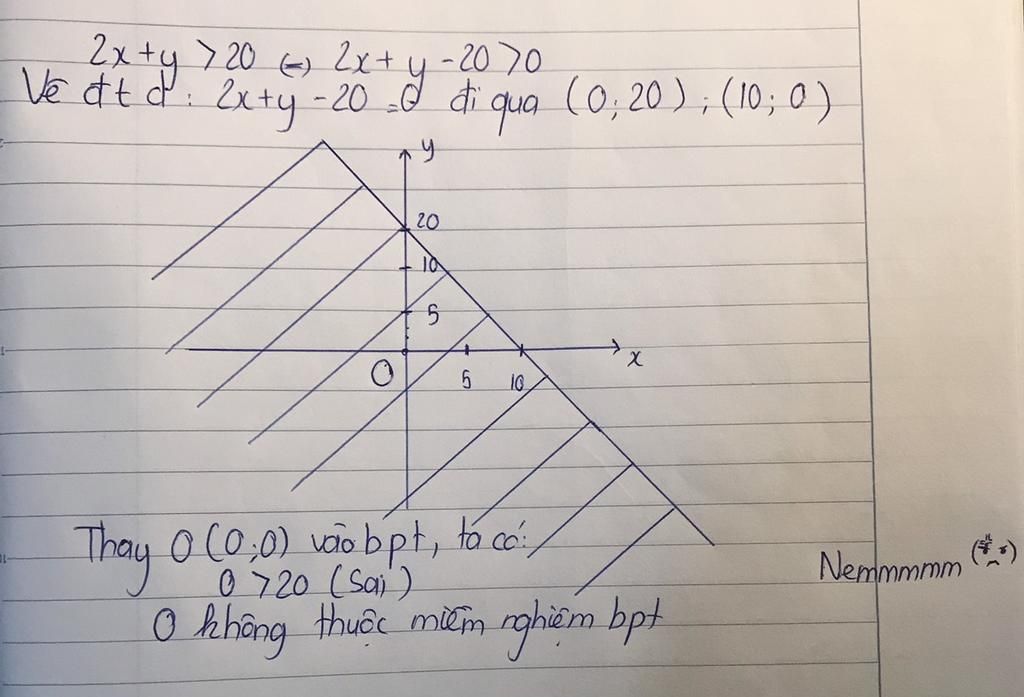 2x+y > 20 (=) 2x+y -20 >0
Vẽ đt d: 2x+y -20 =0 đi qua (0; 20); (10; 0)
y
20
10
5
O 5 10 x
Thay O (0;0) vào bpt, ta có:
0 >20 (Sai)
O không thuộc miềm nghiệm bpt
Nemmmmm